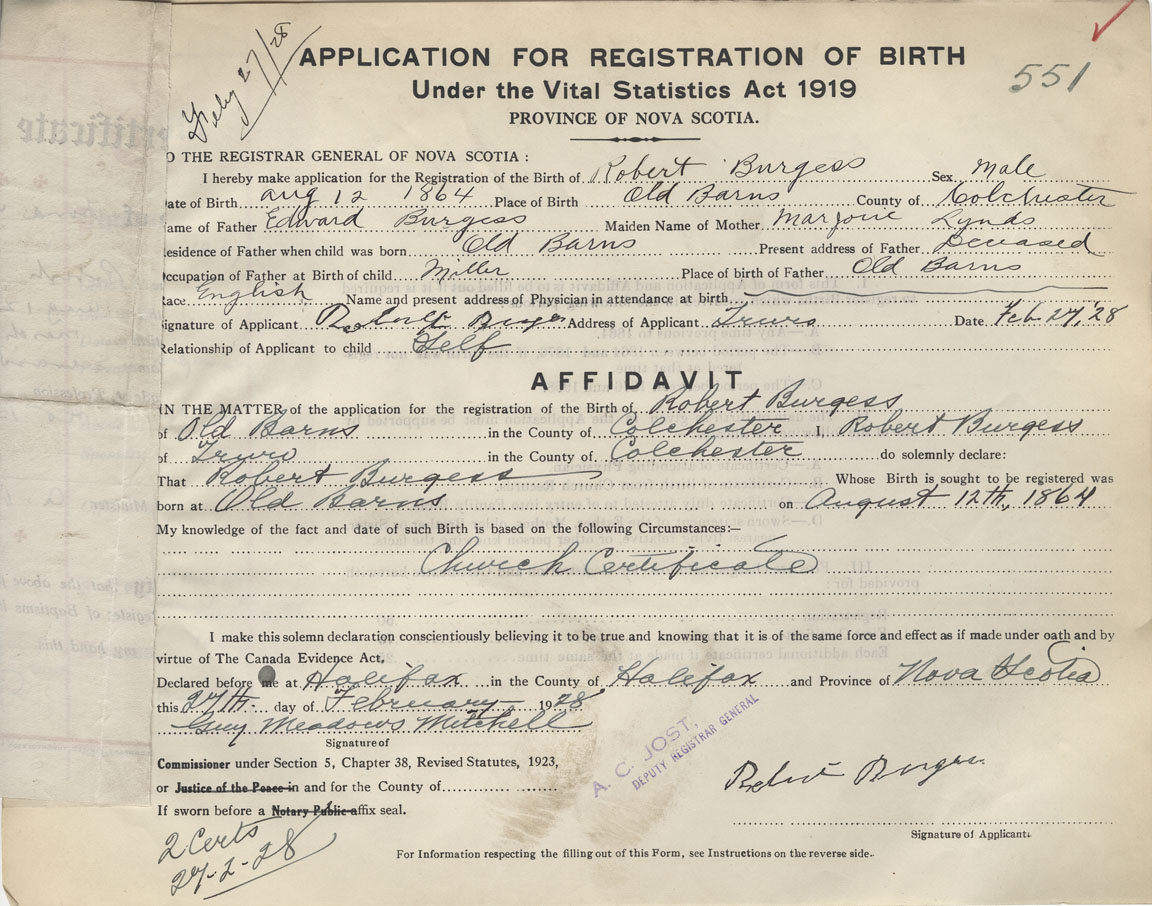 Feby 27/28
APPLICATION FOR REGISTRATION OF BIRTH
551
Under the Vital Statistics Act 1919
PROVINCE OF NOVA SCOTIA.
O THE REGISTRAR GENERAL OF NOVA SCOTIA :
I hereby make application for the Registration of the Birth of Robert Burgess Sex Male
ate of Birth Aug 12 1864 Place of Birth Old Barns County of Colchester
ame of Father Edward Burgess Maiden Name of Mother Marjorie Lynds
esidence of Father when child was born Old Barns Present address of Father Deceased
ccupation of Father at Birth of child Miller Place of birth of Father Old Barns
ace. English Name and present address of Physician in attendance at birth
ignature of Applicant Robert Burgess Address of Applicant Truro Date Feb. 27,'28
elationship of Applicant to child Self
AFFIDAVIT
IN THE MATTER of the application for the registration of the Birth of Robert Burgess
of Old Barns in the County of Colchester I, Robert Burgess
of Truro in the County of Colchester do solemnly declare:
That Robert Burgess Whose Birth is sought to be registered was
born at Old Barns on August 12th, 1864
My knowledge of the fact and date of such Birth is based on the following Circumstances:—
Church Certificate
I make this solemn declaration conscientiously believing it to be true and knowing that it is of the same force and effect as if made under oath and by
virtue of The Canada Evidence Act,
Declared before me at Halifax in the County of Halifax and Province of Nova Scotia
this 27th day of February 1928
Guy Meadows Mitchell
Signature of
Commissioner under Section 5, Chapter 38, Revised Statutes, 1923,
or Justice of the Peace in and for the County of
If sworn before a Notary Public affix seal.
A. C. JOST,
DEPUTY REGISTRAR GENERAL
Robert Burgess
Signature of Applicant.
2 Certs
27-2-28
For Information respecting the filling out of this Form, see Instructions on the reverse side.